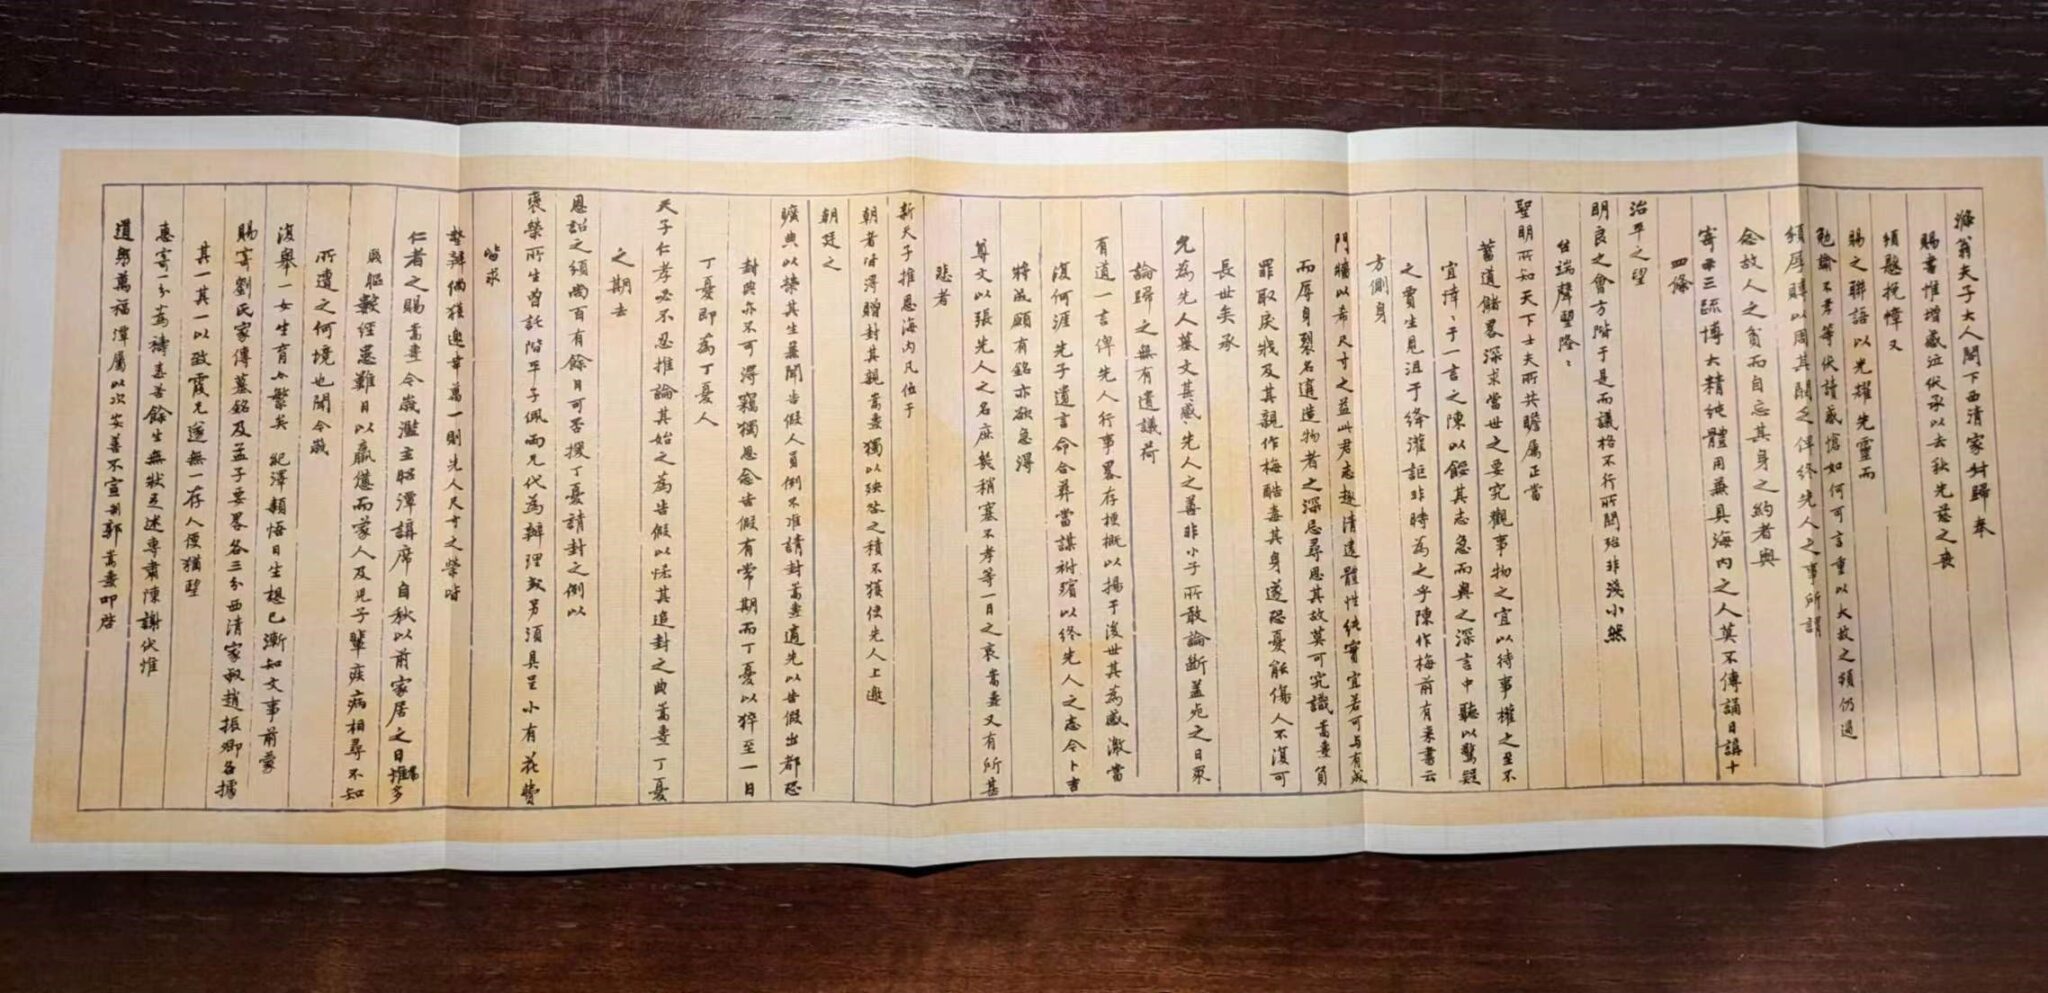 滌翁夫子大人閣下西清家對歸奉
賜書惟增感泣伏承以去秋先慈之喪
頒慰挽幛又
賜之聯語以光耀先靈而
勉諭不孝等伏讀感愴如何可言重以大故之頒仍過
頒厚賻以周其闕乏俾終先人之事所謂
念故人之貧而自忘其身之約者與
寄示三疏博大精純體用兼具海內之人莫不傳誦日講十
四條
治平之望
明良之會方階于是而議格不行所關殆非淺小然
世端聲望隆隆
聖明所知天下士夫所共瞻屬正當
蓄道儲畧深求當世之要究觀事物之宜以待事權之至不
宜諄諄于一言之陳以餡其志急而與之深言中聽以驚疑
之賈生見沮于絳灌詎非時為之乎陳作梅前有來書云
方側身
門牆以希尺寸之益此君志趣清遠體性純實宜若可与有成
而辱身裂名適造物者之深忌尋思其故莫可究識嵩燾負
罪取戾戕及其親作梅酷毒其身遂恐憂能傷人不復可
長世矣承
允為先人墓文其感先人之善非小子所敢論斷蓋宛之日眾
論歸之無有遺議荷
有道一言俾先人行事畧存梗概以揚于後世其為感激當
復何涯先子遺言命合葬當謀祔殯以終先人之志今卜吉
將成願有銘亦欲急得
尊文以張先人之名庶幾稍塞不孝等一日之哀嵩燾又有所甚
悲者
新天子推恩海內凡位于
朝者皆得贈封其親嵩燾獨以殃咎之積不獲使先人上邀
朝廷之
曠典以榮其生兼聞告假人員例不准請封嵩燾適先以告假出都恐
封典亦不可得竊獨思念告假有常期而丁憂以猝至一日
丁憂即為丁憂人
天子仁孝必不忍推論其始之為告假以恡其追封之典嵩燾丁憂
之期去
恩詔之頒尚百有餘日可否援丁憂請封之例以
褒榮所生曾託階平子佩兩兄代為辦理或另須具呈小有花費
皆求
墊辦倘獲邀幸萬一則先人尺寸之榮皆
仁者之賜嵩燾今歲濫主昭潭講席自秋以前家居之日多
所遺之何境也聞今歲
復舉一女生育亦繁矣紀澤穎悟日生想已漸知文事前蒙
賜寄劉氏家傳墓銘及孟子要畧各三分西清家叔趙振卿各擄
其一其一以致霞兄遂無一存人便猶望
惠寄一分為禱甚苦餘生無狀足述專肅陳謝伏惟
道躬萬福潭屬以次安善不宣制郭嵩燾叩啓